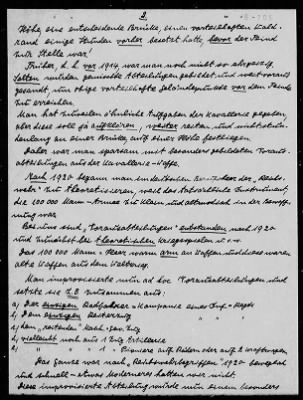 2.
Höhe, eine entscheidende Brücke, einen vorteilhaften Wald-
rand einige Stunden vorher besetzt hatte, bevor der Feind
zur Stelle war!
Früher, d. h. vor 1914, war man noch nicht so
Selten wurden gemischte Abteilungen gebildet und weit voraus
gesandt, um obige vorteilhafte Geländepunkte vor dem Feinde
zu erreichen.
Man hat zuweilen ähnliche Aufgaben der Kavallerie gegeben,
aber diese soll ja aufklären, weiter reiten und nicht
an einer Brücke auf einer Höhe festliegen.
Daher war man sparsam mit besonders gebildeten Voraus-
abteilungen aus der Kavallerie-Waffe.
Nach 1920 begann man im deutschen der Reichs-
wehr zu theoretisieren, weil das
die 100 000 Mann-Armee zu klein und altmodisch in der Bewaff-
nung war.
Bei uns sind "Vorausabteilungen" entstanden nach 1920
und zunächst bei theoretischen Kriegsspielen u.s.w.
Das 100 000 Mann-Heer war arm an Waffen und dieses waren
alte Waffen aus dem Weltkrieg.
Man improvisierte nun ad hoc Vorausabteilungen und
setzte sie z.B. zusammen aus:
a) Der einzigen Radfahrer-Kompanie eines Inf.-Regts
b) Dem einzigen Reiterzug
c) dem "reitenden" Nachr.
d) vielleicht noch aus 1 Zug Artillerie
e) " " 1 " Pioniere auf Rädern oder auf 2 Kraftwagen.
Das Ganze war nach Reichswehrbegriffen 1920 beweglich
und schnell – etwas Moderneres hatten wir nicht.
Diese improvisierte Abteilung würde nun einem besonders